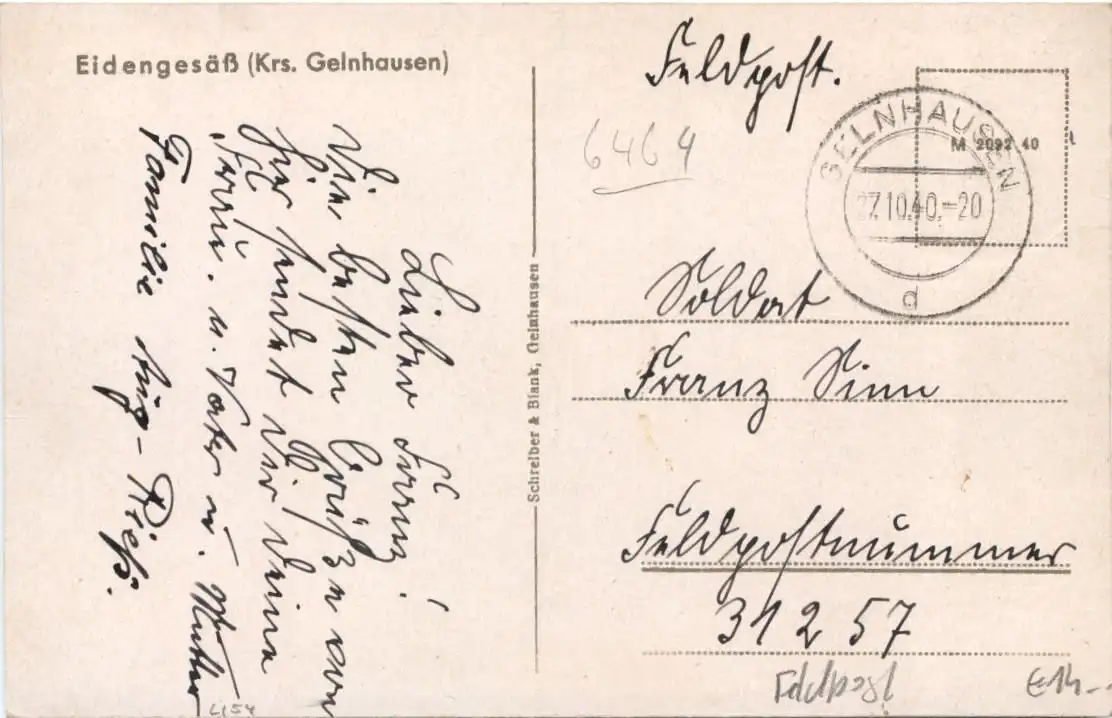 Eidengesäß (Krs. Gelnhausen)
Lieber Franz!
Die besten Grüße von
hier sendet Dir Deine
Frau u. Vater u. Mutter
Familie Aug. Rieß.
Schreiber & Blank, Gelnhausen
Feldpost.
6464
GELNHAUSEN
27.10.40.-20
d
M 2092 40
Soldat
Franz Sinn
Feldpostnummer
31257
Feldpost
€14.-